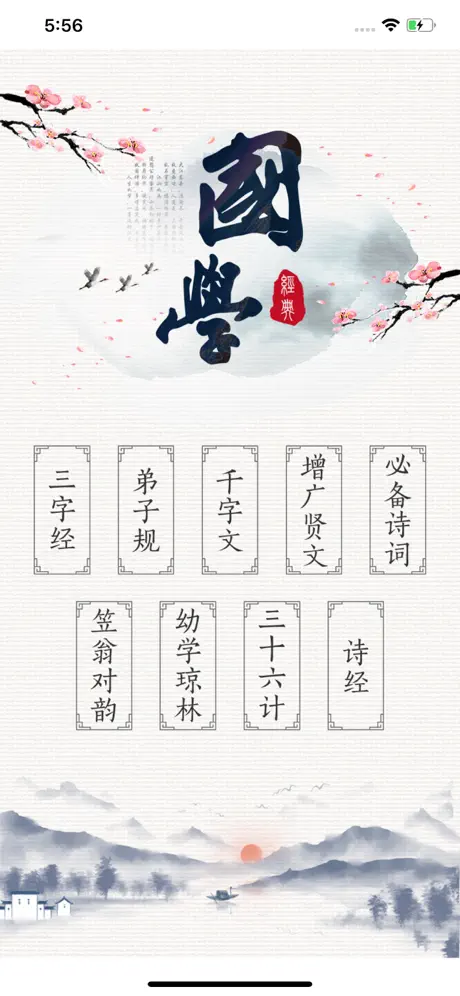 5:56
國學
經典
三字经
弟子规
千字文
增广贤文
必备诗词
笠翁对韵
幼学琼林
三十六计
诗经